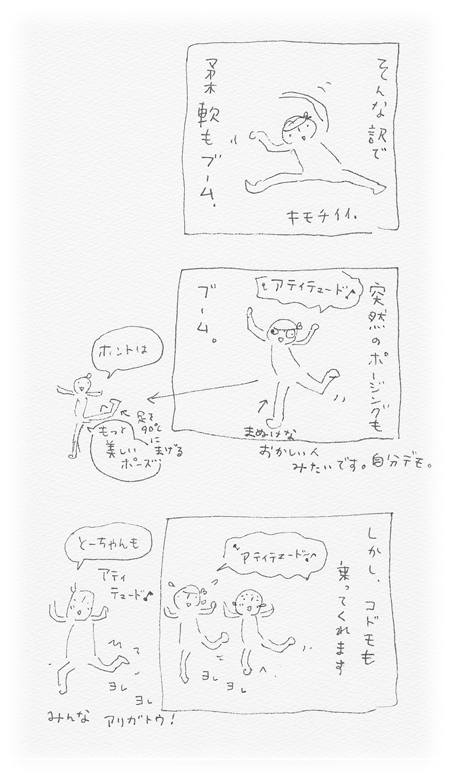 そんな訳で
柔軟もブーム。
キモチイイ。
突然のポージングも
ブーム。
アティテュード♪
まぬけな
おかしい人
みたいです。自分デモ。
ホントは
足を
90°に
まげる
もっと
美しい
ポーズ
しかし、コドモも
乗ってくれます
アティテュード〜♪
とーちゃんも
アティ
テュード♪
ヨレ
ヨレ
ヨレ
ヨレ
みんな アリガトウ!